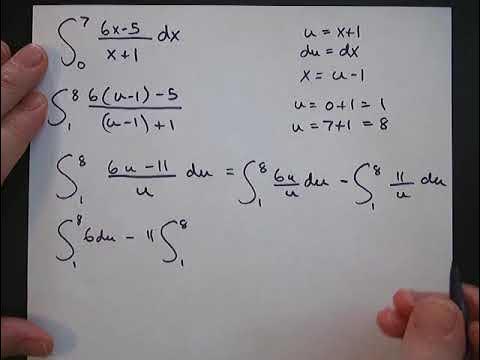 ∫₀⁷ (6x-5)/(x+1) dx
u = x+1
du = dx
x = u-1
∫₁⁸ (6(u-1)-5)/((u-1)+1)
u = 0+1 = 1
u = 7+1 = 8
∫₁⁸ (6u-11)/u du = ∫₁⁸ 6u/u du - ∫₁⁸ 11/u du
∫₁⁸ 6du - 11 ∫₁⁸